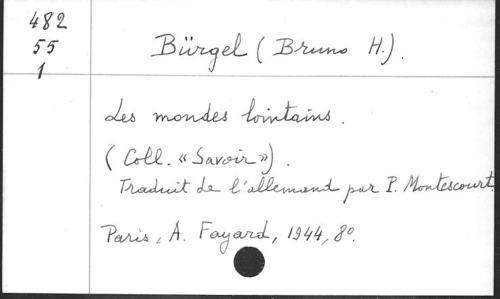 482
55
1
Bürgel (Bruno H.).
Les mondes lointains.
(Coll. «Savoir»).
Traduit de l'allemand par P. Montescourt.
Paris, A. Fayard, 1944, 8º.